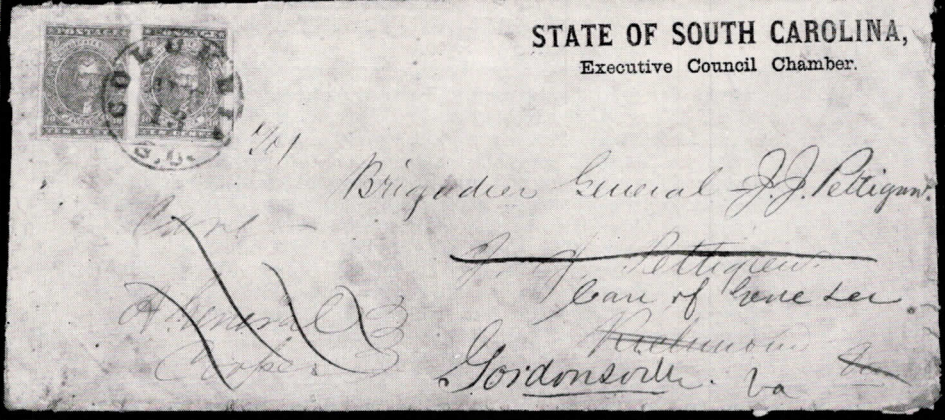 STATE OF SOUTH CAROLINA,
Executive Council Chamber.
COLUMBIA
S.C.
Brigadier General J.J. Pettigrew.
J. J. Pettigrew
Care of Genl Lee.
Richmond Va
Gordonsville. Va
Care
General
Cooper